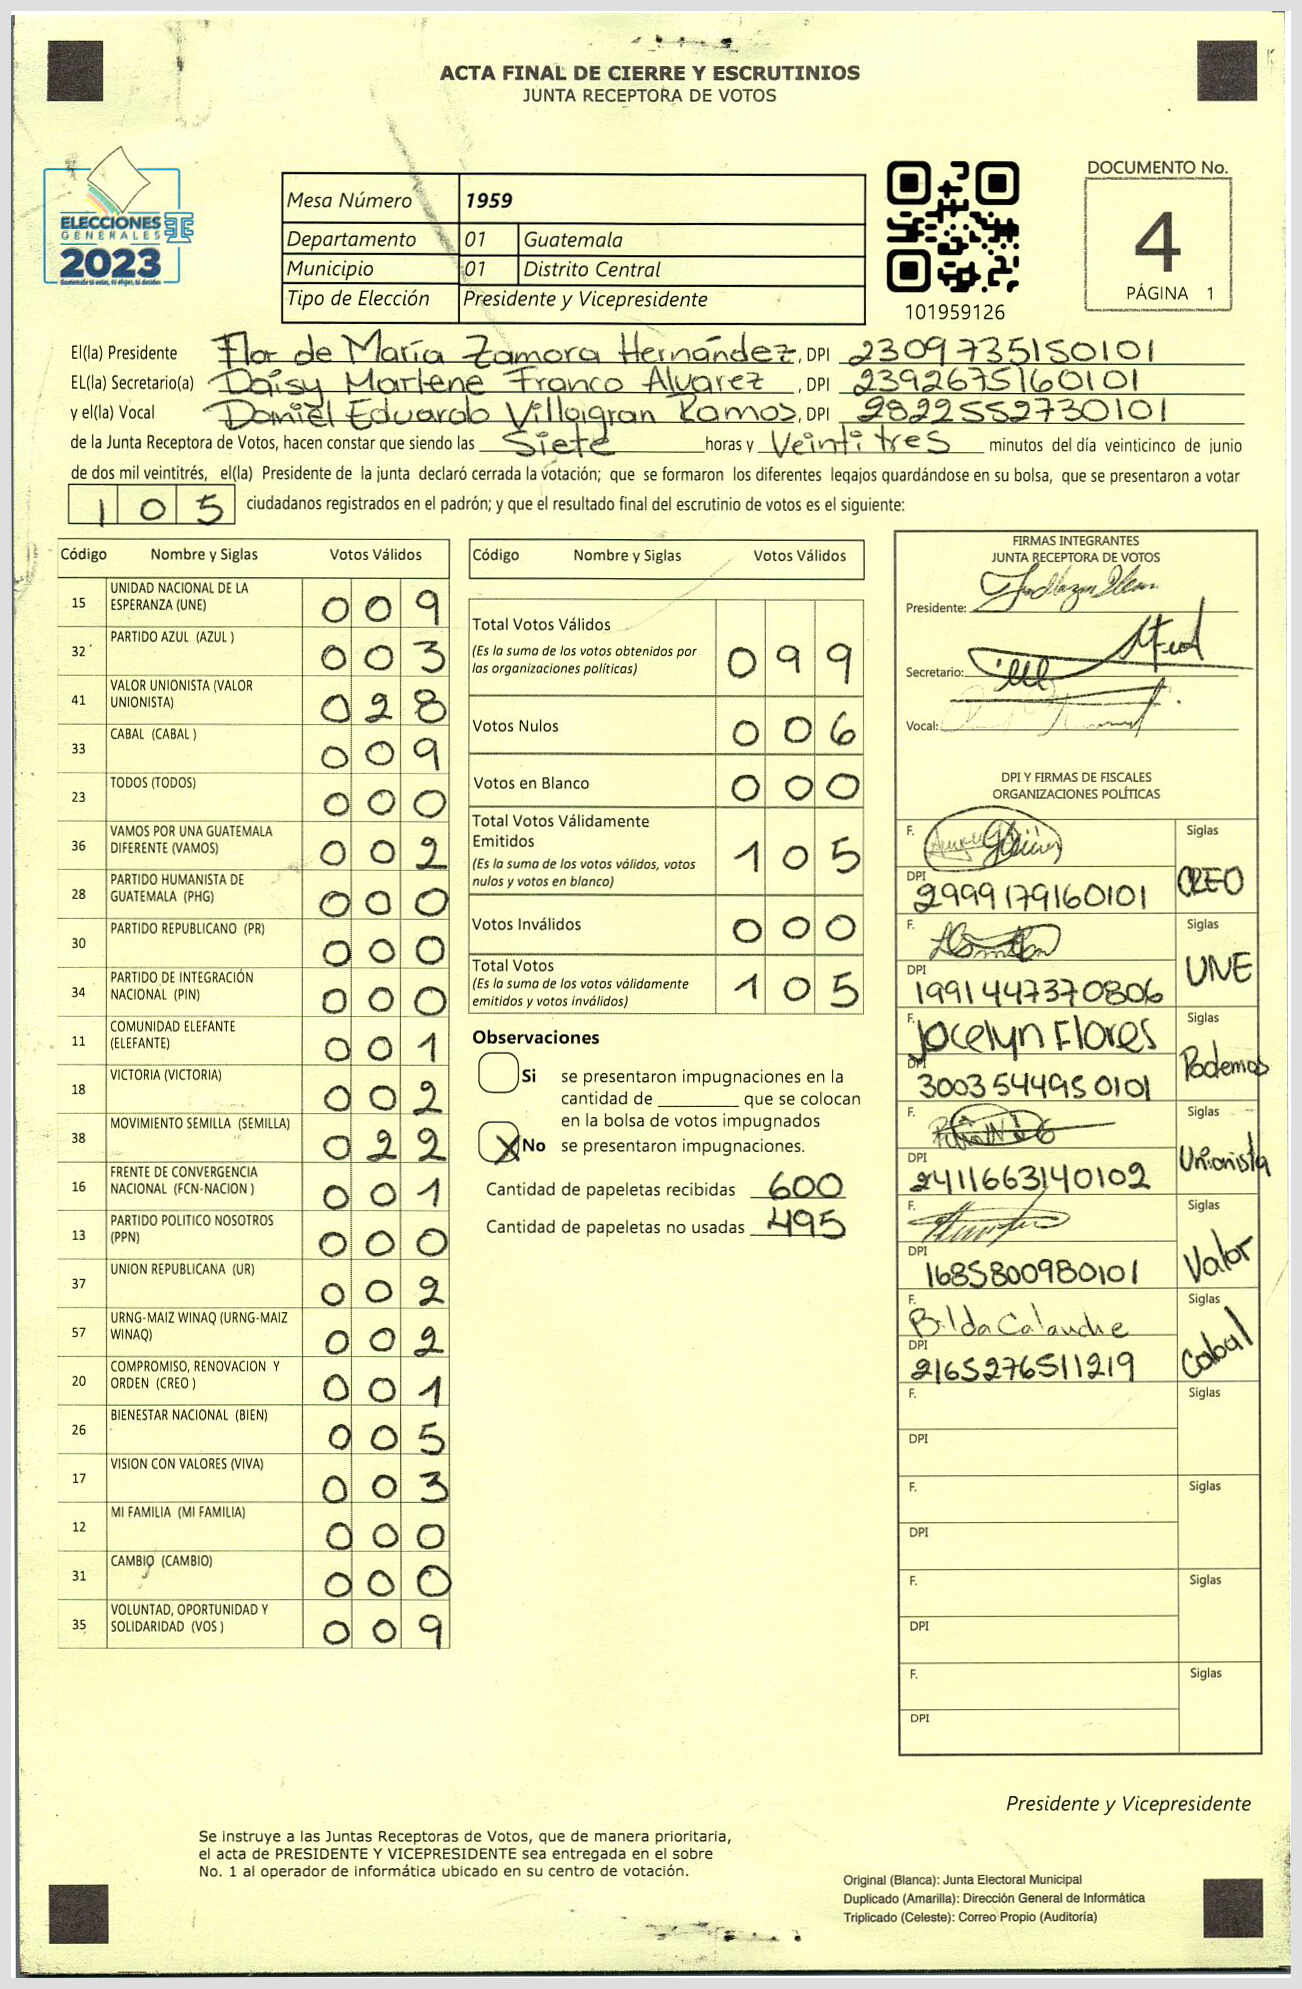 ACTA FINAL DE CIERRE Y ESCRUTINIOS
JUNTA RECEPTORA DE VOTOS
ELECCIONES
GENERALES
2023
Mesa Número 1959
Departamento 01 Guatemala
Municipio 01 Distrito Central
Tipo de Elección Presidente y Vicepresidente
101959126
DOCUMENTO No.
4
PÁGINA 1
El(la) Presidente Flor de María Zamora Hernández, DPI 2309735150101
EL(la) Secretario(a) Daisy Marlene Franco Alvarez, DPI 2392675160101
y el(la) Vocal Daniel Eduardo Villagran Ramos, DPI 2822552730101
de la Junta Receptora de Votos, hacen constar que siendo las Siete horas y Veintitres minutos del día veinticinco de junio
de dos mil veintitrés, el(la) Presidente de la junta declaró cerrada la votación; que se formaron los diferentes legajos guardándose en su bolsa, que se presentaron a votar
105 ciudadanos registrados en el padrón; y que el resultado final del escrutinio de votos es el siguiente:
Código Nombre y Siglas Votos Válidos
15 UNIDAD NACIONAL DE LA ESPERANZA (UNE) 009
32 PARTIDO AZUL (AZUL ) 003
41 VALOR UNIONISTA (VALOR UNIONISTA) 028
33 CABAL (CABAL ) 009
23 TODOS (TODOS) 000
36 VAMOS POR UNA GUATEMALA DIFERENTE (VAMOS) 002
28 PARTIDO HUMANISTA DE GUATEMALA (PHG) 000
30 PARTIDO REPUBLICANO (PR) 000
34 PARTIDO DE INTEGRACIÓN NACIONAL (PIN) 000
11 COMUNIDAD ELEFANTE (ELEFANTE) 001
18 VICTORIA (VICTORIA) 002
38 MOVIMIENTO SEMILLA (SEMILLA) 022
16 FRENTE DE CONVERGENCIA NACIONAL (FCN-NACION ) 001
13 PARTIDO POLITICO NOSOTROS (PPN) 000
37 UNION REPUBLICANA (UR) 002
57 URNG-MAIZ WINAQ (URNG-MAIZ WINAQ) 002
20 COMPROMISO, RENOVACION Y ORDEN (CREO ) 001
26 BIENESTAR NACIONAL (BIEN) 005
17 VISION CON VALORES (VIVA) 003
12 MI FAMILIA (MI FAMILIA) 000
31 CAMBIO (CAMBIO) 000
35 VOLUNTAD, OPORTUNIDAD Y SOLIDARIDAD (VOS ) 009
Código Nombre y Siglas Votos Válidos
Total Votos Válidos 099
(Es la suma de los votos obtenidos por
las organizaciones políticas)
Votos Nulos 006
Votos en Blanco 000
Total Votos Válidamente
Emitidos 105
(Es la suma de los votos válidos, votos
nulos y votos en blanco)
Votos Inválidos 000
Total Votos 105
(Es la suma de los votos válidamente
emitidos y votos inválidos)
Observaciones
Si se presentaron impugnaciones en la
cantidad de ________ que se colocan
en la bolsa de votos impugnados
X No se presentaron impugnaciones.
Cantidad de papeletas recibidas 600
Cantidad de papeletas no usadas 495
FIRMAS INTEGRANTES
JUNTA RECEPTORA DE VOTOS
Presidente:
Secretario:
Vocal:
DPI Y FIRMAS DE FISCALES
ORGANIZACIONES POLÍTICAS
F. Siglas
DPI 2999179160101 CREO
F. Siglas
DPI 1991447370806 UNE
F. Jocelyn Flores Siglas
DPI 3003544950101 Podemos
F. Siglas
DPI 2411663140102 Unionista
F. Siglas
DPI 1685800980101 Valor
F. Bilda Calanche Siglas
DPI 2165276511219 Cabal
F. Siglas
DPI
F. Siglas
DPI
F. Siglas
DPI
F. Siglas
DPI
Presidente y Vicepresidente
Se instruye a las Juntas Receptoras de Votos, que de manera prioritaria,
el acta de PRESIDENTE Y VICEPRESIDENTE sea entregada en el sobre
No. 1 al operador de informática ubicado en su centro de votación.
Original (Blanca): Junta Electoral Municipal
Duplicado (Amarilla): Dirección General de Informática
Triplicado (Celeste): Correo Propio (Auditoría)